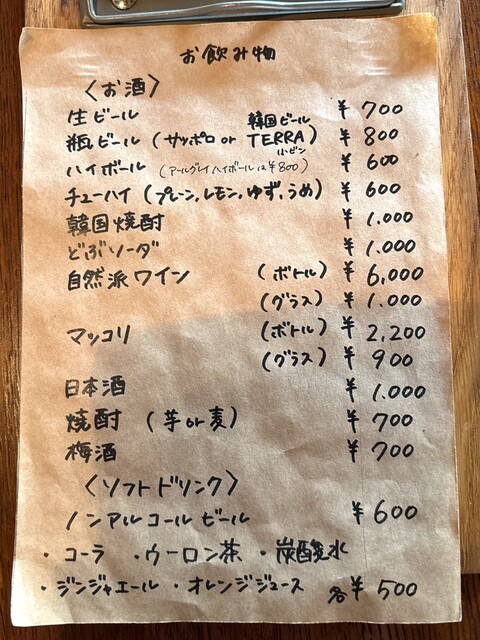 お飲み物
〈お酒〉
生ビール ¥700
韓国ビール
瓶ビール (サッポロ or TERRA) ¥800
小ビン
ハイボール (アールグレイハイボールは¥800) ¥600
チューハイ (プレーン,レモン,ゆず,うめ) ¥600
韓国焼酎 ¥1.000
どぶソーダ ¥1.000
自然派ワイン (ボトル) ¥6,000
(グラス) ¥1.000
マッコリ (ボトル) ¥2,200
(グラス) ¥900
日本酒 ¥1.000
焼酎 (芋or麦) ¥700
梅酒 ¥700
〈ソフトドリンク〉
ノンアルコールビール ¥600
・コーラ ・ウーロン茶 ・炭酸水
・ジンジャエール ・オレンジジュース 各¥500